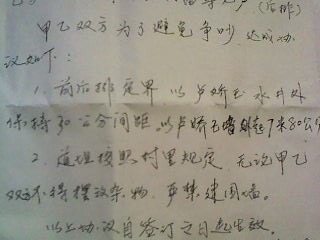 (后排)
甲乙双方为了避免争吵达成协
议如下:
1. 前后排定界以卢娇玉水井外
保持30公分间距。以卢娇玉墙外起7米80公分
2. 道坦按照村里规定,无论甲乙
双方不得摆放杂物,严禁建围墙。
以上协议自签订之日起生效。